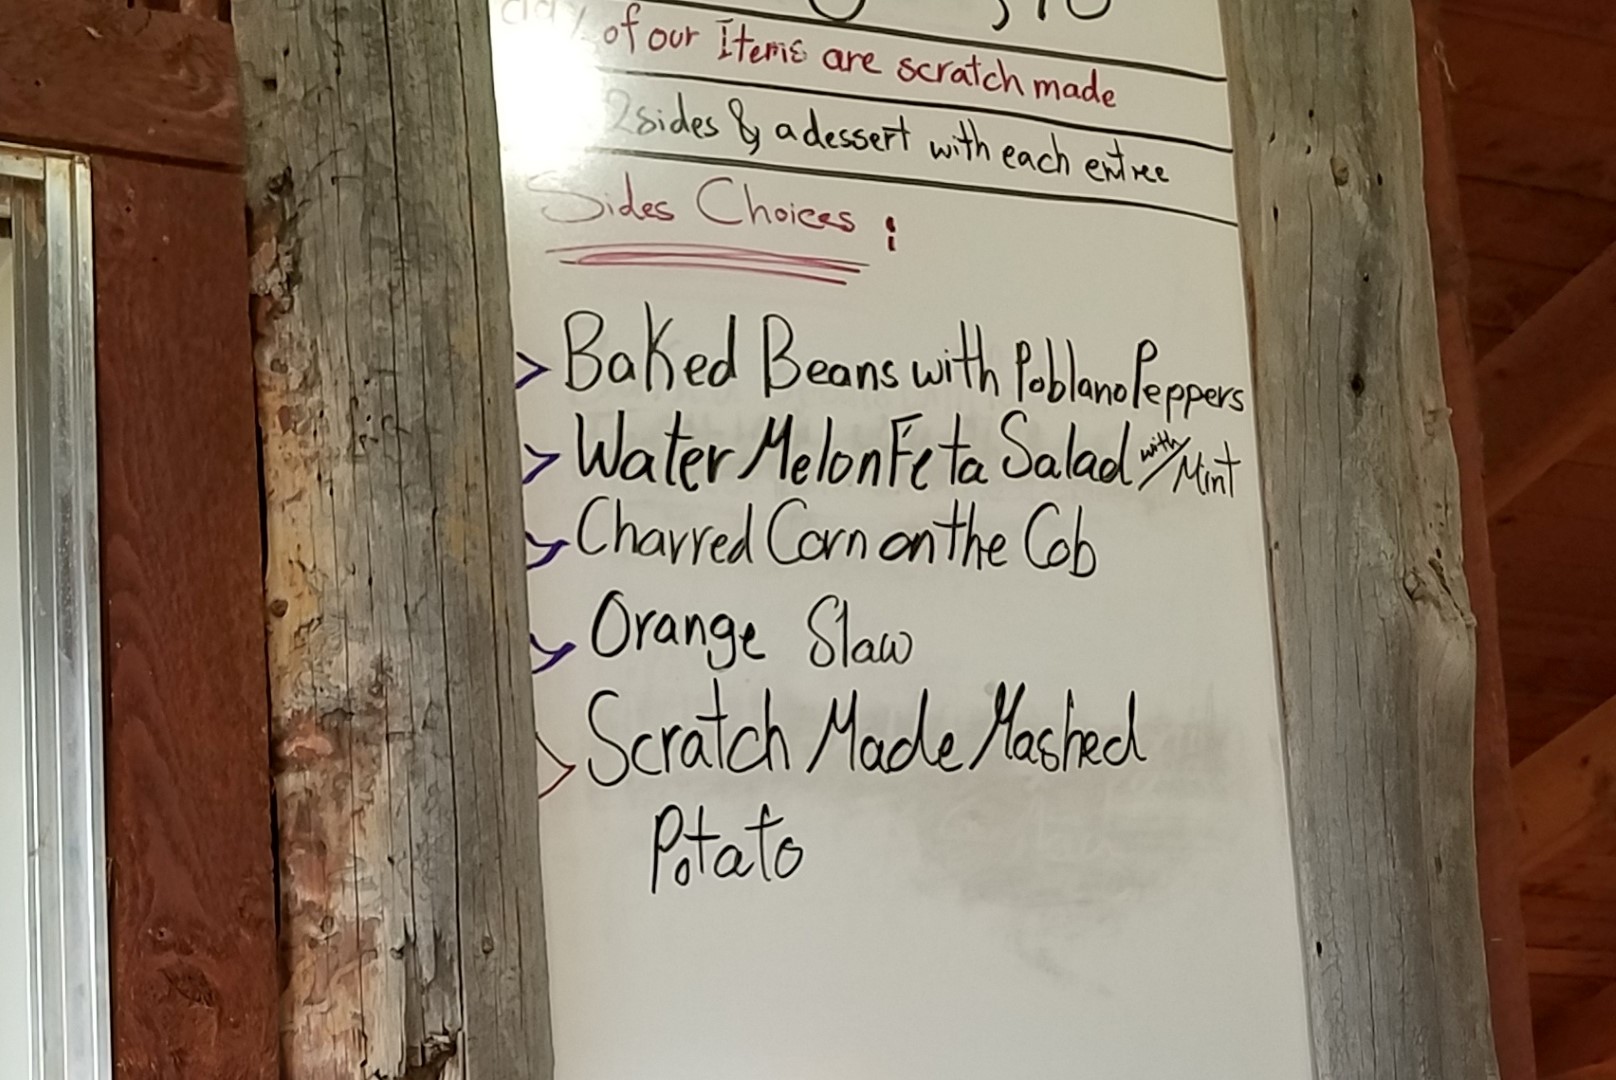 of our Items are scratch made
2 sides & a dessert with each entree
Sides Choices :
> Baked Beans with Poblano Peppers
> Water Melon Feta Salad with/Mint
> Charred Corn on the Cob
> Orange Slaw
> Scratch Made Mashed
Potato